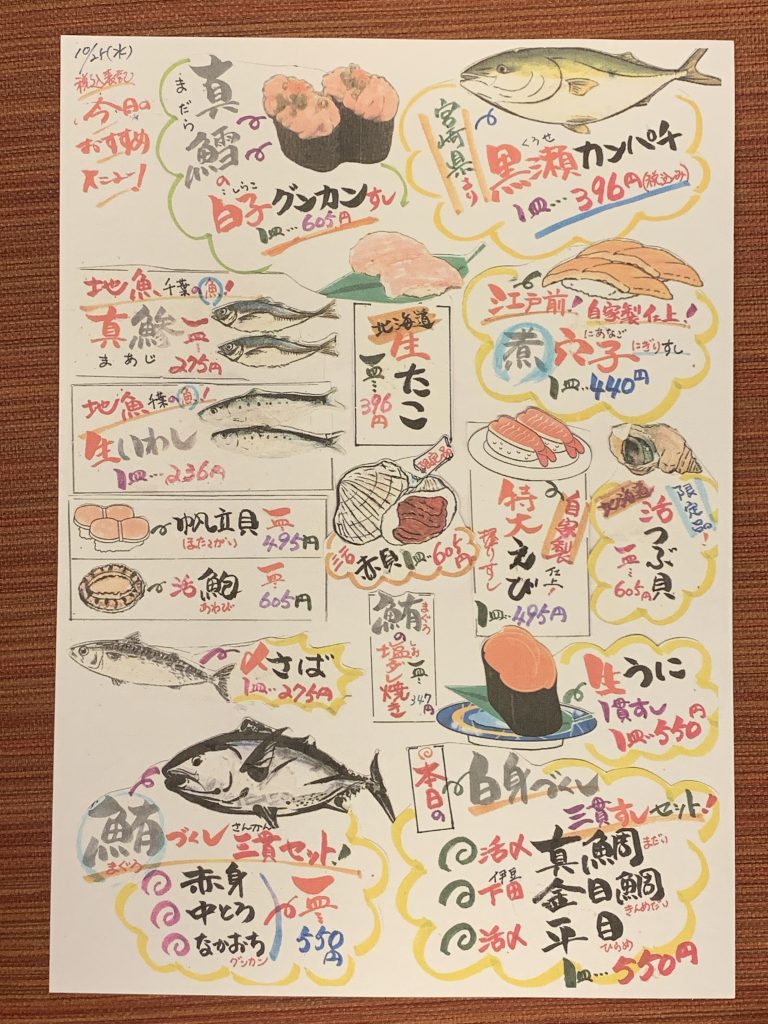 10/25(水)
税込表記
今日の
おすすめ
メニュー!
まだら
真鱈の
しらこ
白子グンカンすし
1皿…605円
宮崎県より
くろせ
黒瀬カンパチ
1皿…396円(税込み)
地魚千葉の魚!
真鯵
まあじ
一皿…275円
北海道
生たこ
一皿…396円
江戸前!自家製仕上!
にあなご
煮穴子にぎりすし
1皿…440円
地魚千葉の魚!
生いわし
1皿…236円
帆立貝
ほたてがい
一皿…495円
活鮑
あわび
一皿…605円
限定品
活赤貝1皿…605円
特大えび
握りすし
自家製仕上!
1皿…495円
北海道
限定品!
活つぶ貝
一皿…605円
〆さば
1皿…275円
まぐろ
鮪の塩ダレ焼き
しお
一皿…347円
生うに
1貫すし
1皿…550円
鮪づくし三貫セット!
まぐろ
さんかん
赤身
中とろ
なかおち
グンカン
一皿…550円
本日の
白身づくし
三貫すしセット!
活〆真鯛
まだい
伊豆
下田金目鯛
きんめだい
活〆平目
ひらめ
1皿…550円